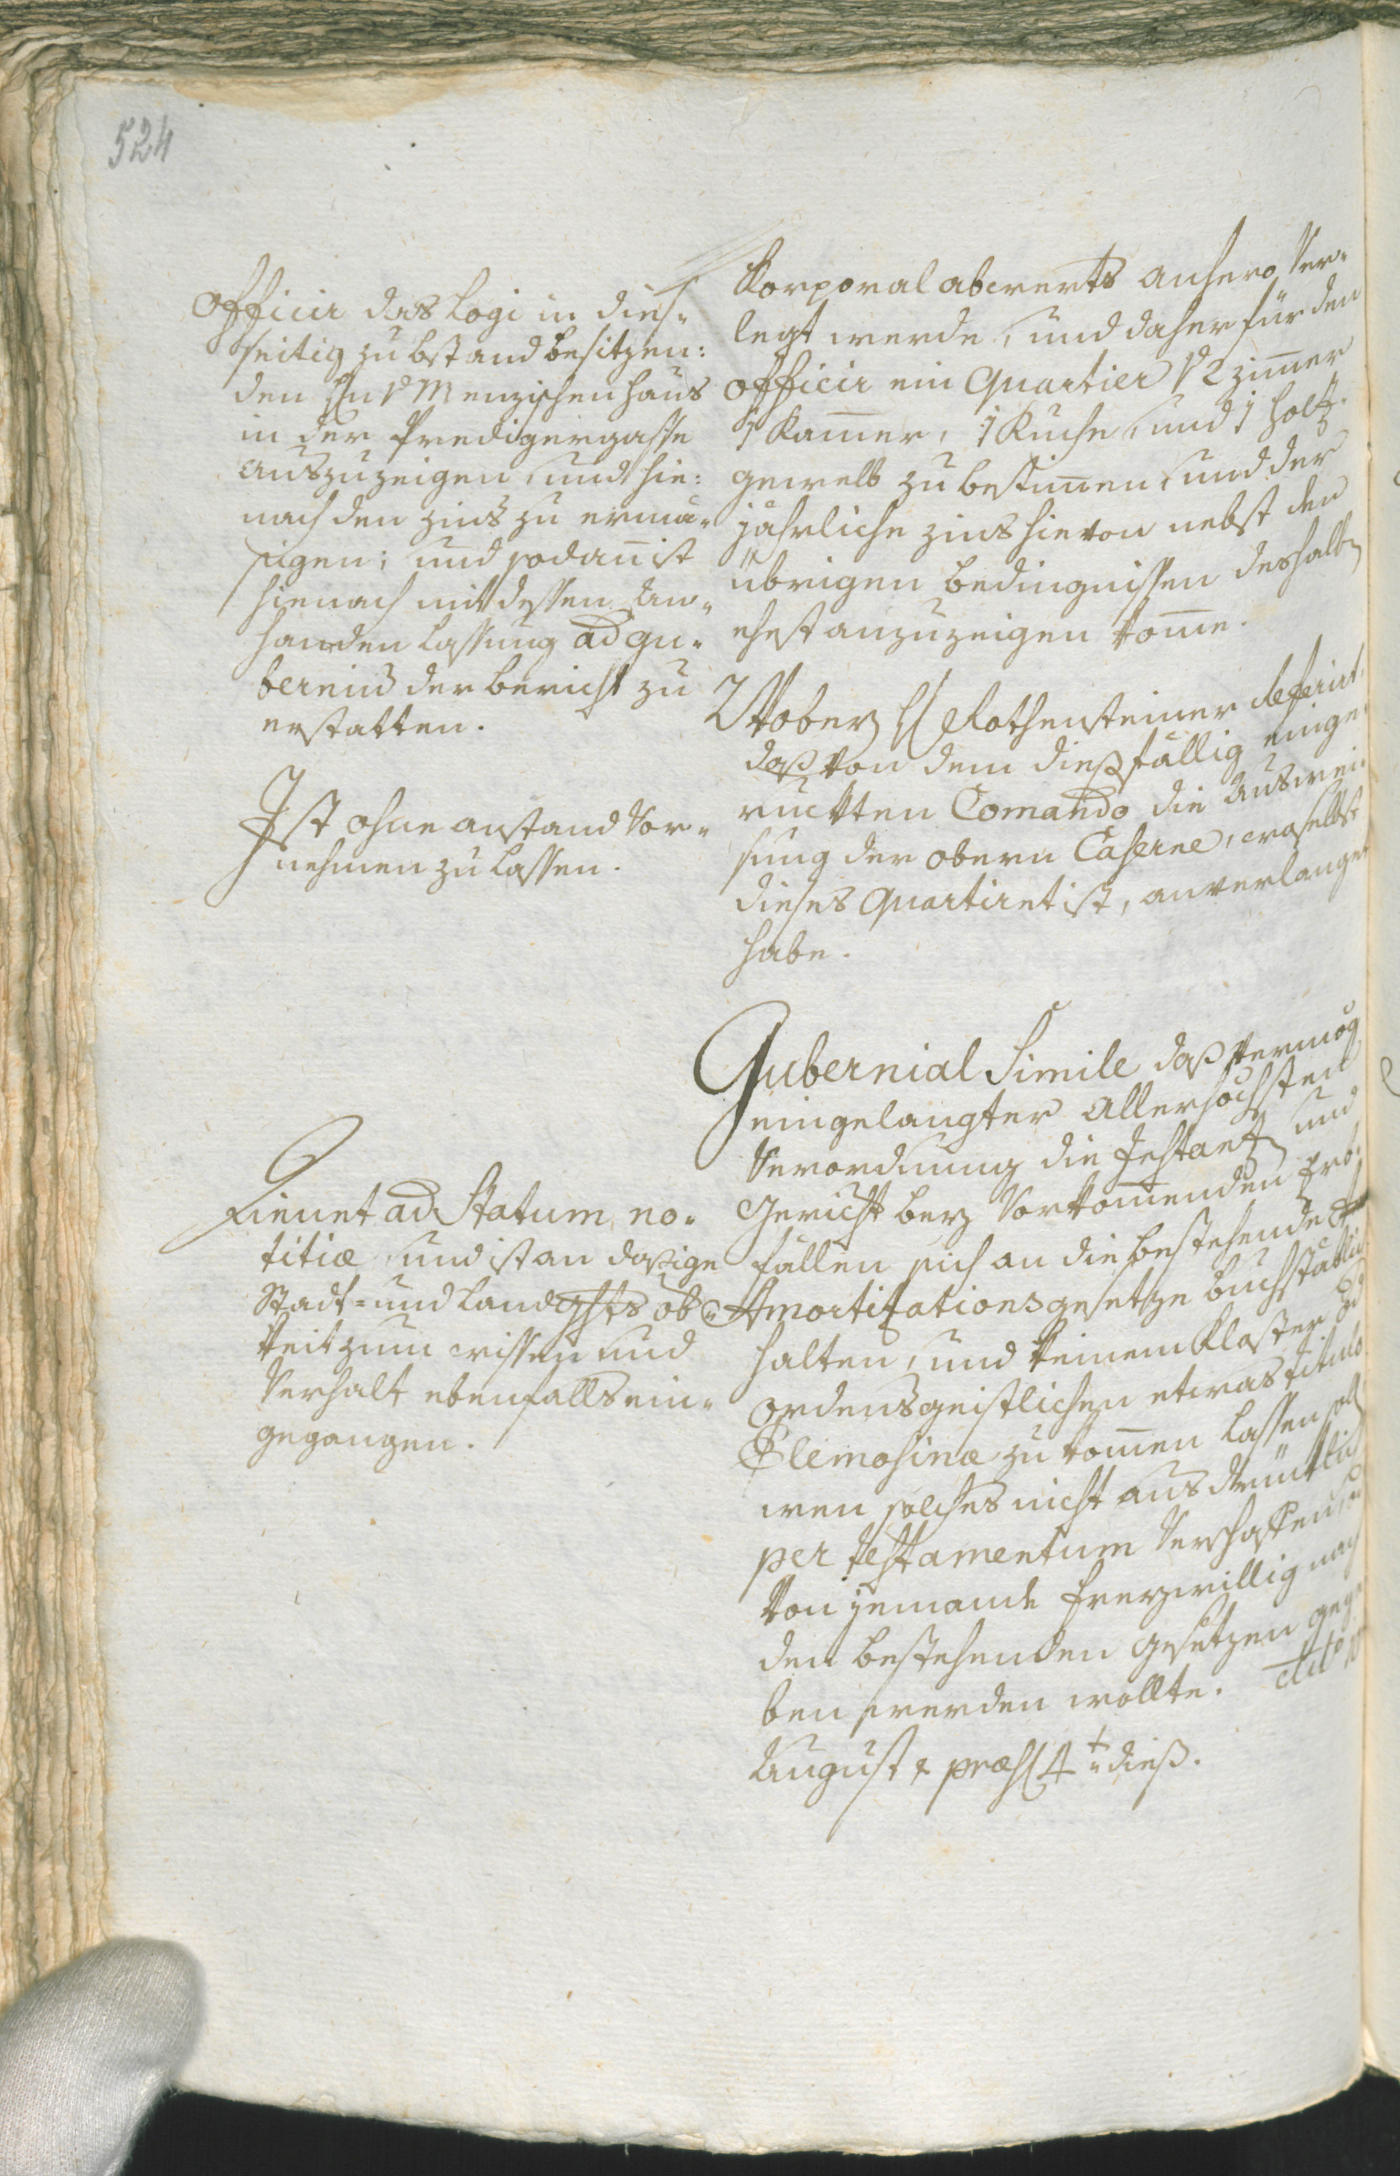 524
Officir das Logi in dies„
seitig zu bstand besitzen:
den Hn v Menzischen Haus
in der Predigergasse
auszuzeigen, und hie:
nach den zins zu ermä„
sigen; und sodan̄ ist
hienach mit dessen An„
handen lassung ad gu„
bernium der bericht zu
erstatten.
Ist ohne anstand vor„
nehmen zu lassen.
Fienet ad Statum no„
titiæ, und ist an dasige
Stadt= und Landghts ob„
keit zum wissen und
Verhalt ebenfalls ein„
gegangen.
Korporal abwerts anhero ver„
legt werde, und daher für den
Officir ein Quartier 2 zim̄er
1 Kam̄er, 1 Kuche, und 1 Holz„
gewelb zu bestim̄en, und der
jährliche zins hievon nebst den
übrigen bedingnissen deshalben
ehest anzuzeigen kom̄e.
Rothensteiner referirt,
daß von dem dießfällig einge„
ruckten Comando die Auswei„
sung der obern Caserne, woselbst
dieses Quartiret ist, anverlanget
habe.
Gubernial Simile daß vermög
eingelangter Allerhöchsten
Verordnung die Instanzen und
Gericht bey vorkom̄enden Erb„
fällen sich an die bestehende
Amortisationsgesetze buchstäblich
halten, und keinem Kloster
ordensgeistlichen etwas titulo
Elemosinæ zu kom̄en lassen soll
wen solches nicht ausdrücklich
per testamentum verschaffen,
von jemande freywillig nach
den bestehenden Gesetzen gege„
ben werden wollte. dto
August & præs. 4t dieß.